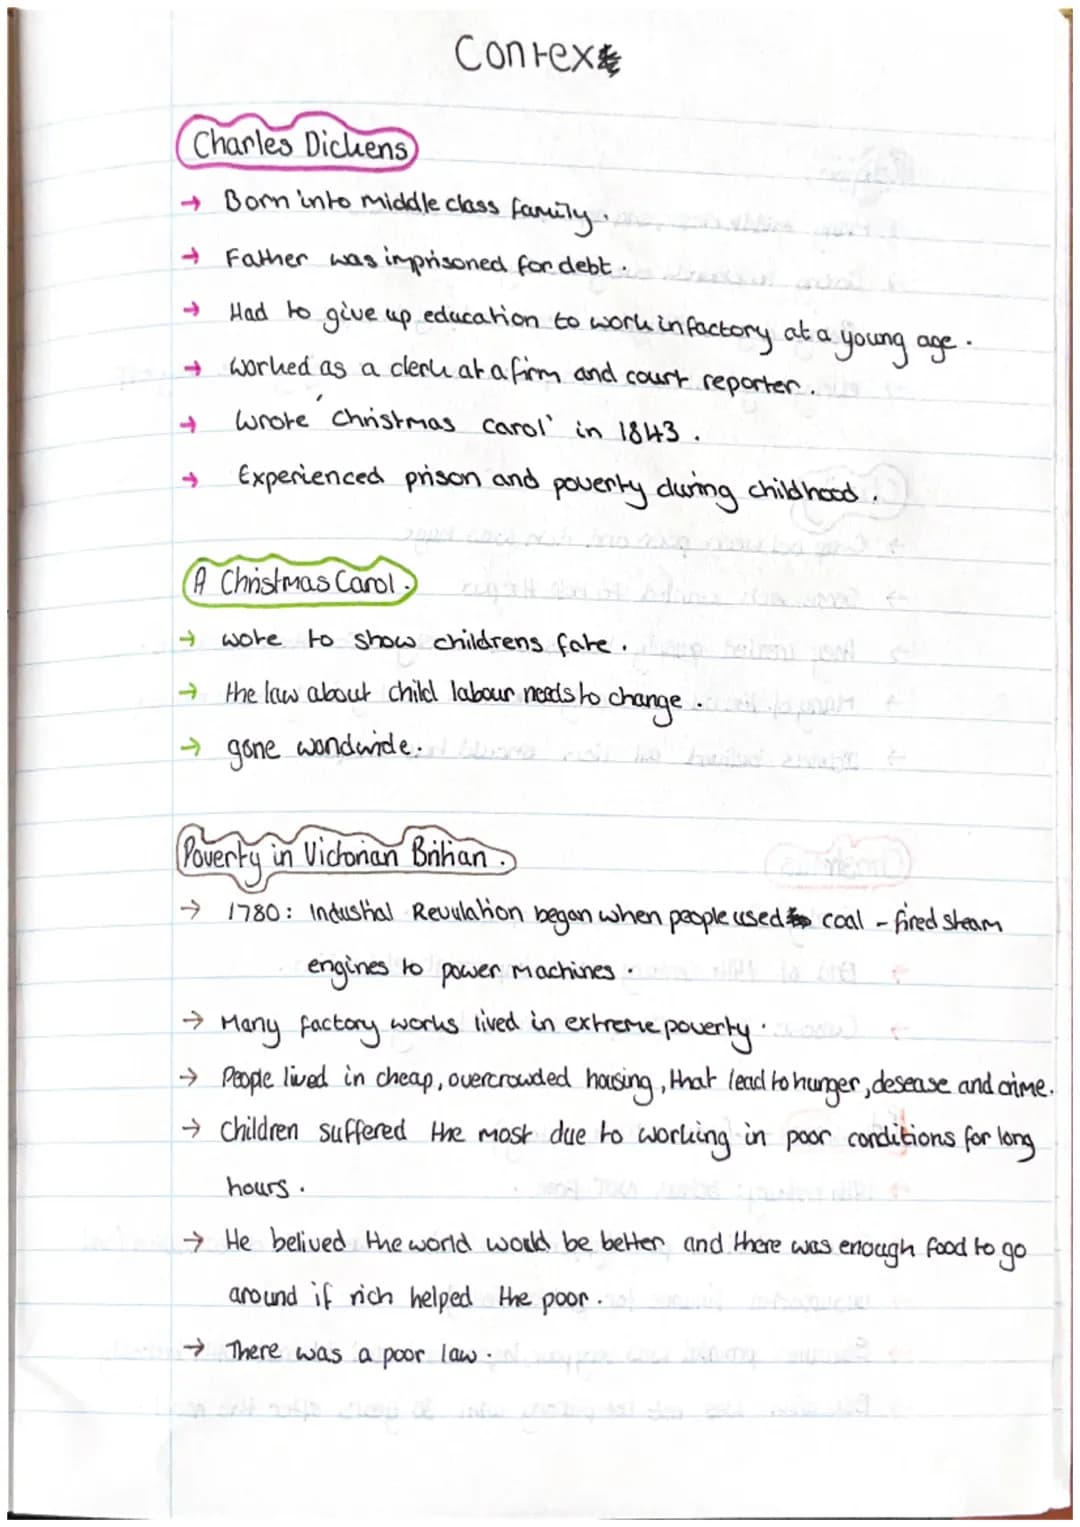 Context
Charles Dickens
→ Born into middle class family.
→ Father was imprisoned for debt.
→ Had to give up education to work in factory at a young age.
→ worked as a clerk at a firm and court reporter.
→ wrote 'christmas carol' in 1843.
→ Experienced prison and poverty during childhood.
A Christmas Carol.
→ wote to show childrens fate.
→ the law about child labour needs to change.
→ gone wondwide.
Poverty in Victorian Britian.
→ 1780: Industrial Revulation began when people used coal - fired steam
engines to power machines.
→ Many factory works lived in extreme poverty.
→ People lived in cheap, overcrowded housing, that lead to hunger, desease and crime.
→ Children suffered the most due to working in poor conditions for long
hours.
→ He belived the world would be better and there was enough food to go
around if rich helped the poor.
→ There was a poor law.